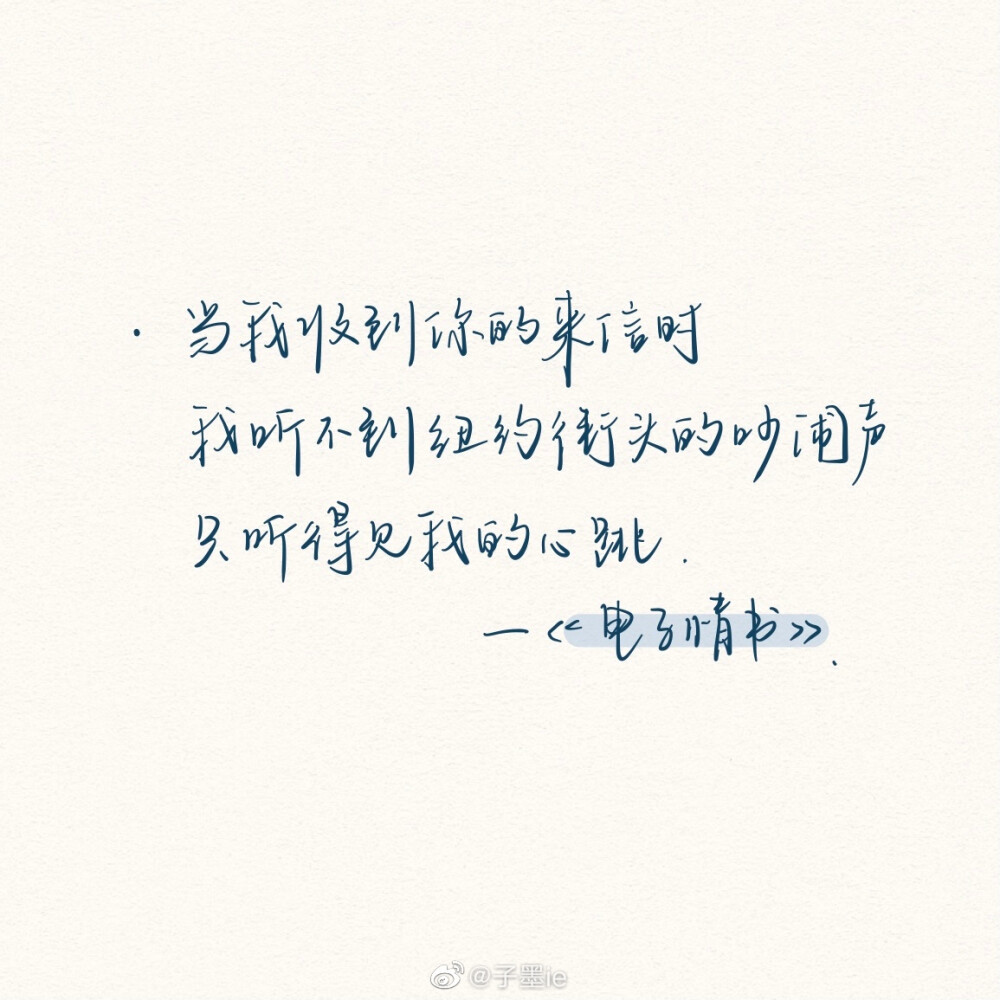 · 当我收到你的来信时
我听不到纽约街头的吵闹声
只听得见我的心跳.
—<<电子情书>>.
@子墨ie